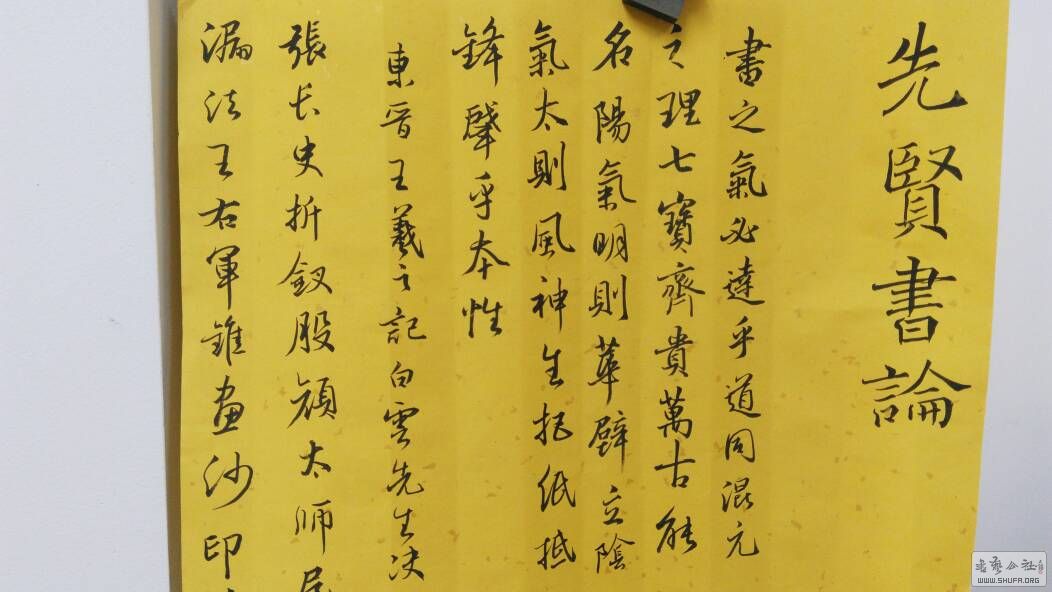 先賢書論
書之氣必達乎道同混元
之理七寶齊貴萬古能
名陽氣明則華壁立陰
氣太則風神生把紙抵
鋒肇乎本性
東晉王羲之記白雲先生決
張长史折釵股顏太師屋
漏法王右軍錐畫沙印
书艺公社
WWW.SHUFA.ORG